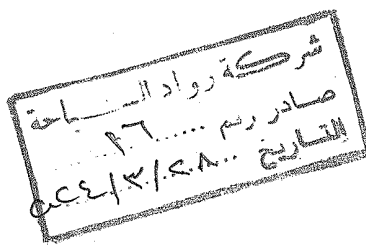 شركة رواد السياحة
صادر رقم ٣٦
التاريخ ٢٠٢٤/٣/٢٨